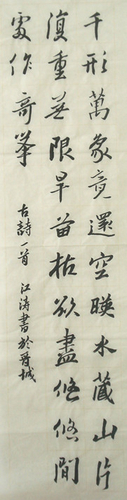 千形萬象竟還空暎水藏山片
復重無限旱苗枯欲盡悠悠閒
處作奇峯
古詩一首 江濤書於晉城